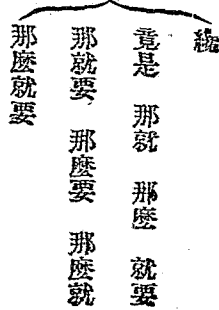 竟是 那就 那麼 就要
那就要, 那麼要 那麼就
那麼就要